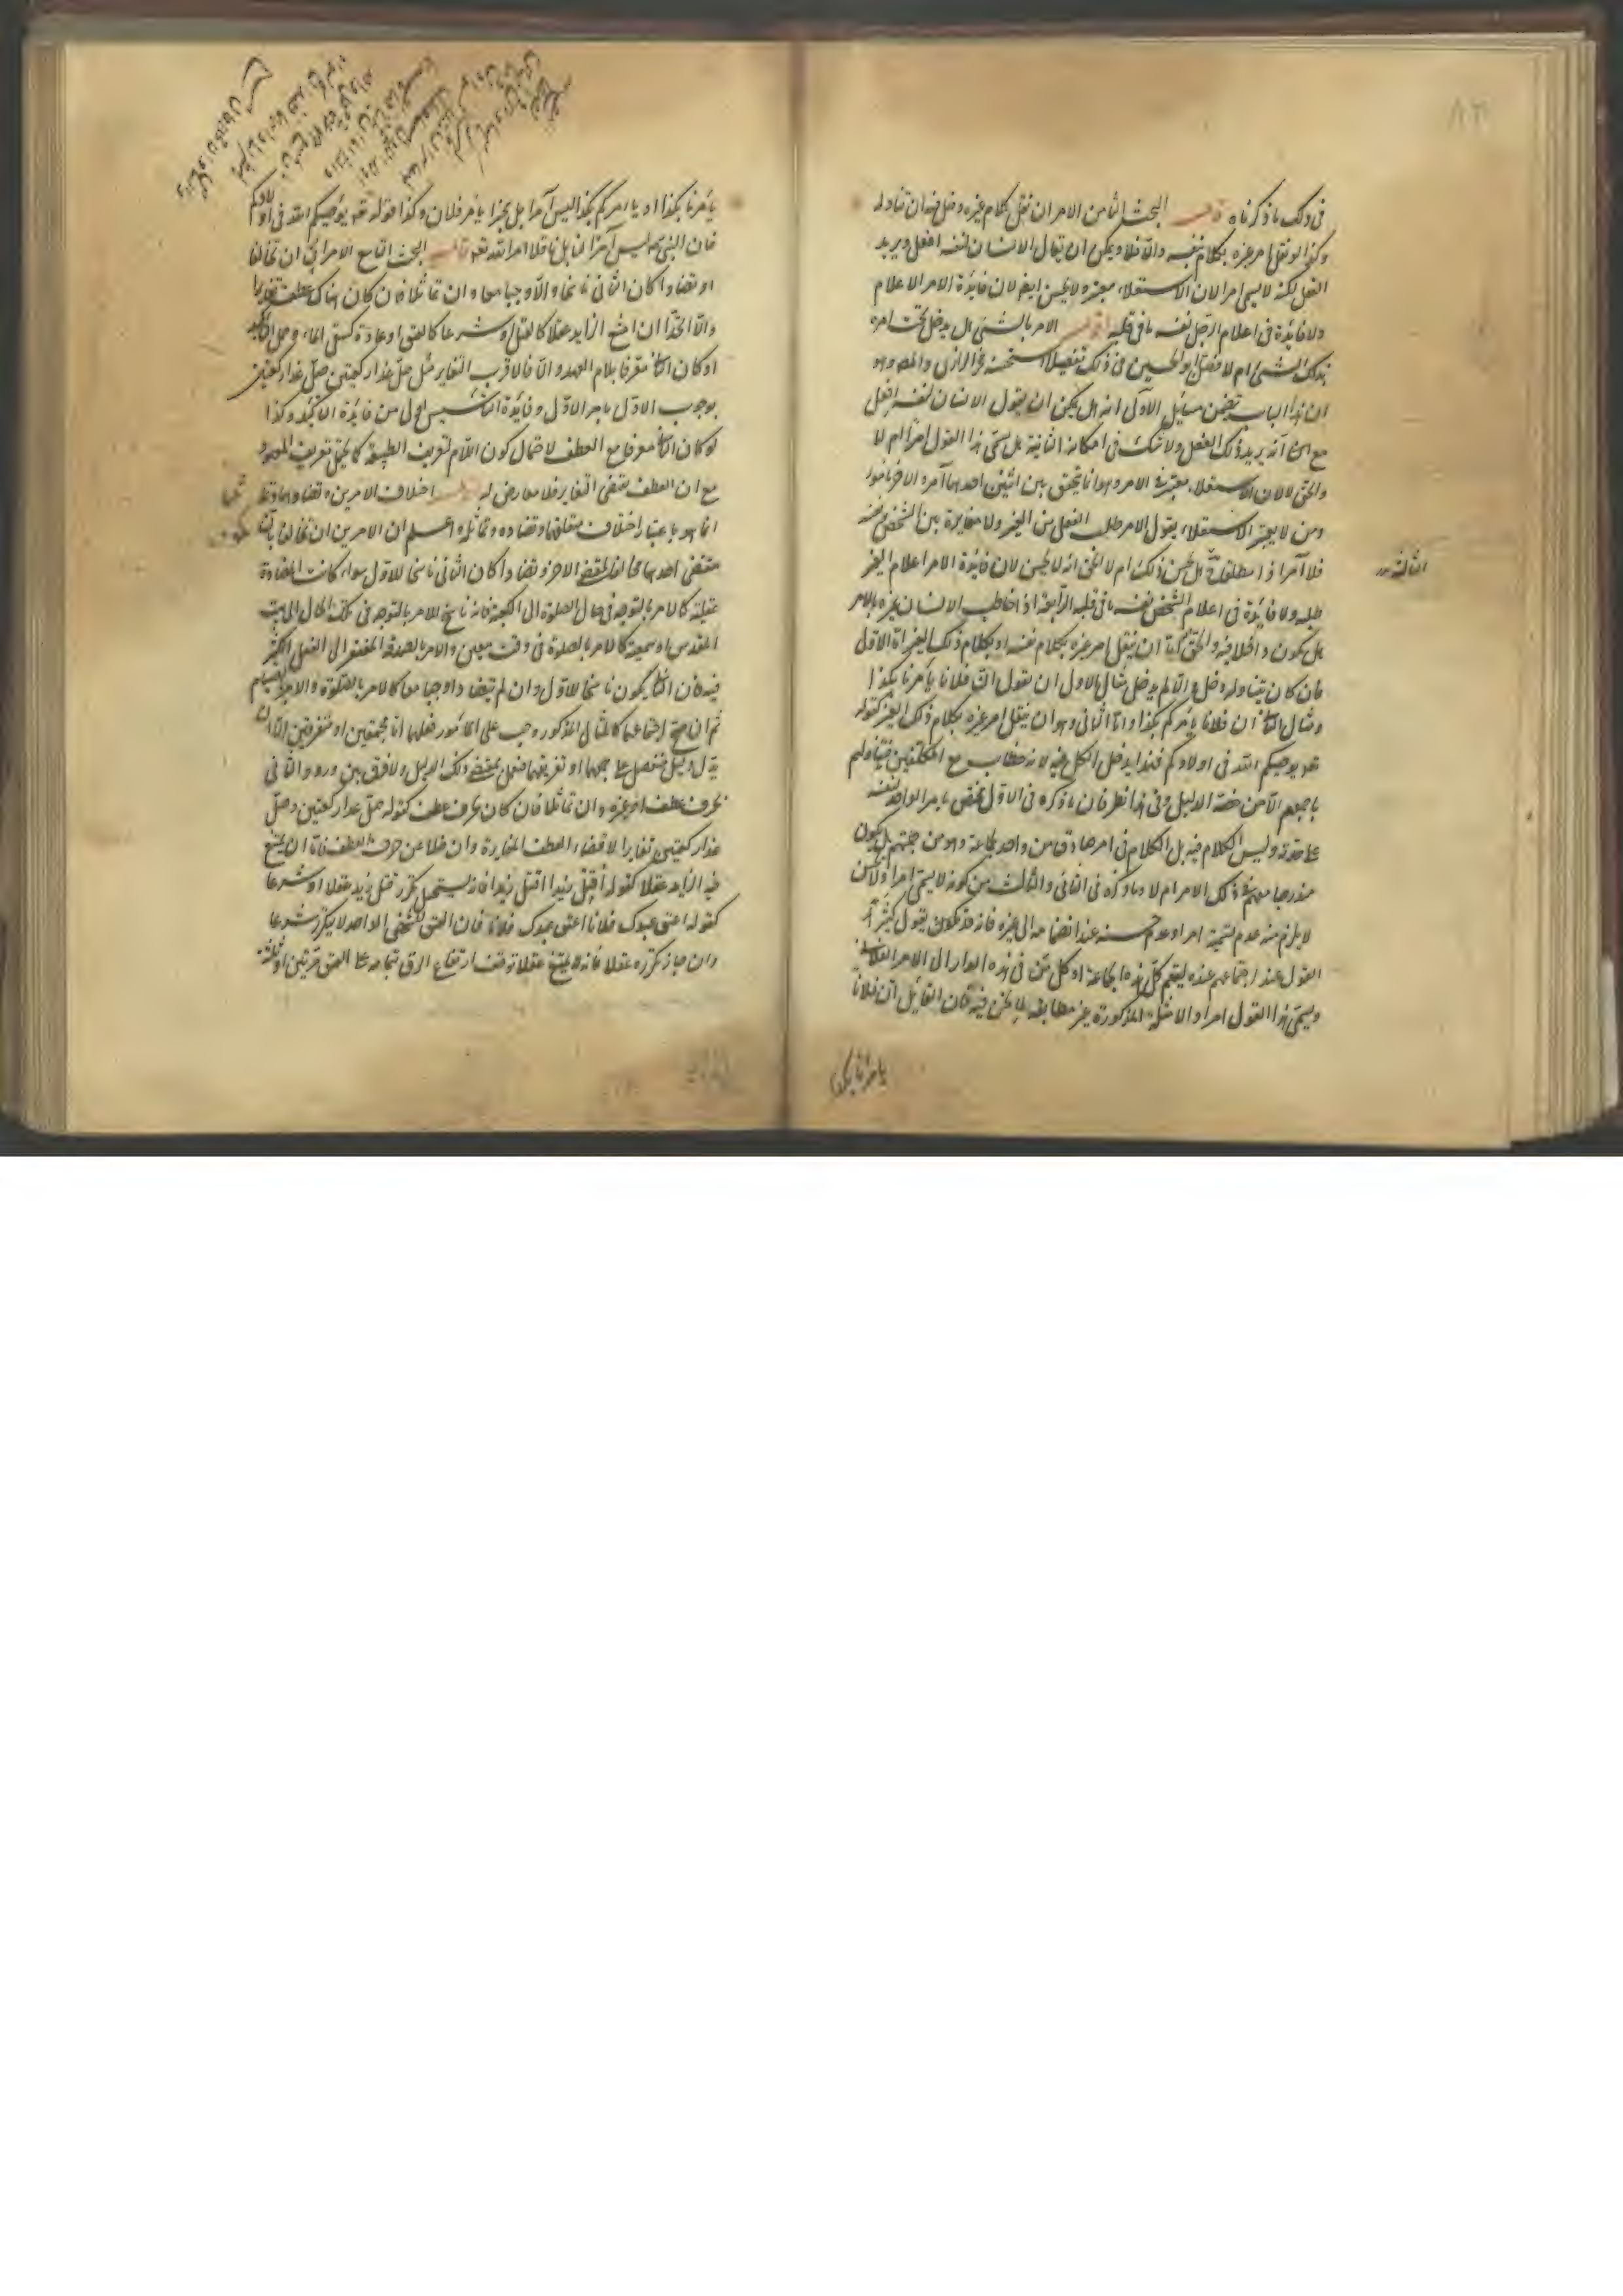 في ذلك ما ذكرناه قال البحث الثامن الامر ان نقل كلام غيره دخل فيه ان تناوله
وكذا لو نقل امر غيره بكلام نفسه والا فلا ويمكن ان يقال الانسان لنفسه افعل ويريد
الفعل لكنه لا يسمى امرا لان الاستعلاء معتبر ولا يحسن ايضا لان فائدة الامر الاعلام
ولا فائدة في اعلام الرجل نفسه ما في قلبه اقول الامر بالشيء هل يدخل تحت امره
بذلك الشيء ام لا فصل ابو الحسين في ذلك تفصيلا استحسنه فخر الرازي والمص وهو
ان هذا الباب يتضمن مسائل الاولى انه هل يمكن ان يقول الانسان لنفسه افعل
مع انه يريد ذلك الفعل ولا شك في امكانه الثانية هل يسمى هذا القول امرا ام لا
والحق لا لان الاستعلاء معتبر في الامر وهو انما يتحقق بين اثنين احدهما آمر والآخر مأمور
ومن لا يعتبر الاستعلاء يقول الامر طلب الفعل من الغير ولا مغايرة بين الشخص ونفسه
فلا آمر اذا مطلقا هل يحسن ذلك ام لا الحق انه لا يحسن لان فائدة الامر اعلام الغير
الثالثة
طلبه ولا فائدة في اعلام الشخص نفسه ما في قلبه الرابعة اذا خاطب الانسان غيره بالامر
هل يكون داخلا فيه والحق انه اما ان ينقل امر غيره بكلام نفسه او بكلام ذلك الغير اما الاول
فان كان يتناوله دخل والا لم يدخل مثال الاول ان يقول ان فلانا يأمرنا بكذا
ومثال الثاني ان فلانا يأمركم بكذا واما الثاني وهو ان ينقل امر غيره بكلام ذلك الغير كقوله
تعالى يوصيكم الله في اولادكم فهذا يدخل الكل فيه لانه خطاب مع المكلفين فيتناولهم
باجمعهم الا من خصه الدليل وفي هذا نظر فان ما ذكره في الاول يختص بامر الواحد لنفسه
على حدته وليس الكلام فيه بل الكلام في امر صادق من واحد لجماعة وهو من جملتهم هل يكون
مندرجا معهم في ذلك الامر ام لا وما ذكره في الثاني والثالث من كونه لا يسمى امرا ولا يحسن
لا يلزم منه عدم تسمية امرا وعدم حسنه عند انضمامه الى غيره فانه قد يكون يقول كثيرا
القول عند اجتماعهم عنده ليقم كل هذه الجماعة او كل من في هذه الدار الى الامر الفلاني
ويسمى هذا القول امرا والامثلة المذكورة غير مطابقة لما نحن فيه فان القائل ان فلانا
يأمرنا بكذا
يأمرنا بكذا او يأمركم بكذا ليس آمرا بل مخبرا بأمر فلان وكذا قوله تعالى يوصيكم الله في اولادكم
فان النبي ليس آمرا لنا بل ناقلا امر الله تعالى قال البحث التاسع الامران ان تخالفا
او تضادا كان الثاني ناسخا والا وجبا معا وان تماثلا فان كان هناك عطف تغايرا
والا اتحدا ان امتنع الزايد عقلا كالقتل او شرعا كالعتق او عادة كسقي الماء وحمل على التأكيد
او كان الثاني معرفا بلام العهد والا فالاقرب التغاير مثل صل غدا ركعتين صل غدا ركعتين
بوجوب الاول بامر الاول وفائدة التأسيس اولى من فائدة التأكيد وكذا
لو كان الثاني معرفا مع العطف لاحتمال كون اللام لتعريف الطبيعة كما يحتمل تعريف المعهود
مع ان العطف يقتضي التغاير فلا معارض له اقول اختلاف الامرين وتضادهما وتماثلهما
انما هو باعتبار اختلاف متعلقهما وتضاده وتماثله اعلم ان الامرين ان تخالفا
مقتضى احدهما مخالفا لمقتضى الاخر وتضادا كان الثاني ناسخا للاول سواء كانت المضادة
عقلية كالامر بالتوجه في حال الصلوة الى الكعبة فانه ناسخ للامر بالتوجه في تلك الحال الى بيت
المقدس او سمعية كالامر بالصلوة في وقت معين والامر بالصدقة المفتقر الى الفعل الكثير
فيه فان الثاني يكون ناسخا للاول وان لم يتضادا وجبا معا كالامر بالصلوة والامر بالصيام
ثم ان صح اجتماعهما كالمثال المذكور وجب على المأمور فعلهما اما مجتمعين او متفرقين الا ان
يدل دليل منفصل على جمعهما او تفريقهما فيعمل بمقتضى ذلك الدليل ولا فرق بين ورود الثاني
بحرف عطف او غيره وان تماثلا فان كان بحرف عطف كقوله صل غدا ركعتين وصل
غدا ركعتين تغايرا لاقتضاء العطف المغايرة وان خلا عن حرف العطف فاما ان يمتنع
فيه الزايد عقلا كقوله اقتل زيدا اقتل زيدا فانه يستحيل تكرر قتل زيد عقلا او شرعا
كقوله اعتق عبدك فلانا اعتق عبدك فلانا فان العتق للشخص الواحد لا يتكرر شرعا
وان جاز تكرره عقلا فانه لا يمتنع عقلا توقف ارتفاع الرق بتمامه على العتق مرتين او ثلثة